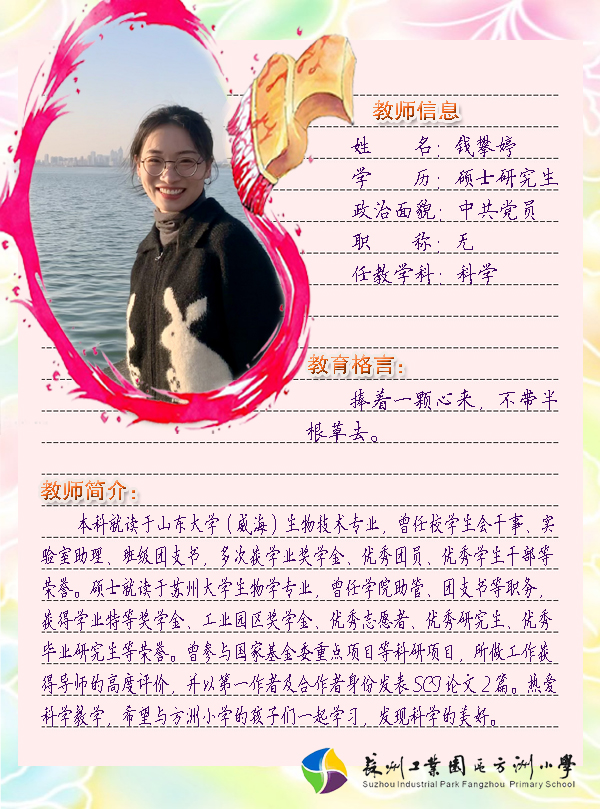 教师信息
姓 名：钱攀婷
学 历：硕士研究生
政治面貌：中共党员
职 称：无
任教学科：科学
教育格言：
捧着一颗心来，不带半
根草去。
教师简介：
本科就读于山东大学（威海）生物技术专业，曾任校学生会干事、实
验室助理、班级团支书，多次获学业奖学金、优秀团员、优秀学生干部等
荣誉。硕士就读于苏州大学生物学专业，曾任学院助管、团支书等职务，
获得学业特等奖学金、工业园区奖学金、优秀志愿者、优秀研究生、优秀
毕业研究生等荣誉。曾参与国家基金委重点项目等科研项目，所做工作获
得导师的高度评价，并以第一作者及合作者身份发表SCI论文2篇。热爱
科学教学，希望与方洲小学的孩子们一起学习，发现科学的美好。
苏州工业园区方洲小學
Suzhou Industrial Park Fangzhou Primary School